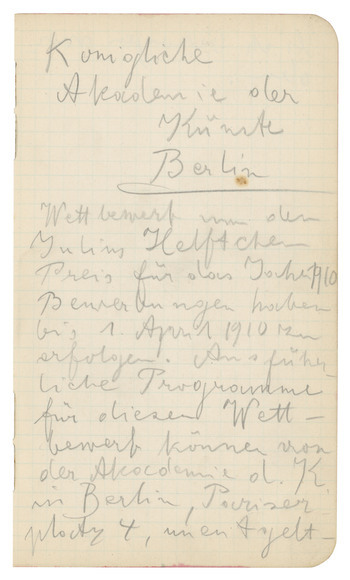 Konigliche
Akademie der
Künste
Berlin
Wettbewerb um den
Julius Helft'schen
Preis für das Jahr 1910
Bewerbungen haben
bis 1. April 1910 zu
erfolgen. Ausführ-
liche Programme
für diesen Wett-
bewerb können von
der Akademie d. K.
in Berlin, Pariser
platz 4, unentgelt-